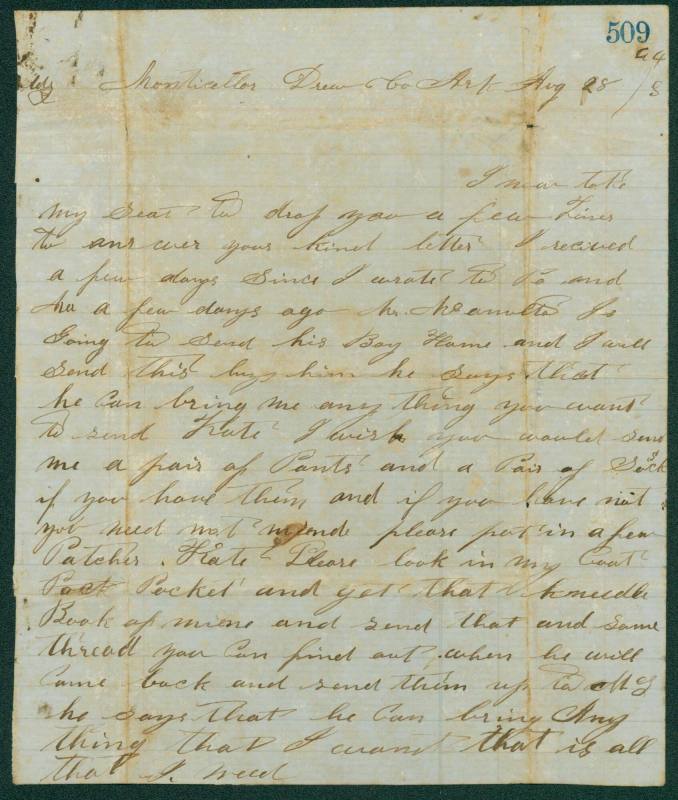 509
Monticello Drew Co Ark Aug 28
I now take
my seat to drop you a few Lines
to answer your kind letter I recived
a few days since I wrote to Pa and
Ma a few days ago Mr. Is
Going to send his Boy Home and I will
send this buy him he says that
he can bring me any thing you want
to send Kate I wish you would send
me a pair of Pants and a Pair of Sock
if you have them and if you have not
you need not please put in a few
Patches. Kate Please look in my Coat
Pock Pocket and get that kneedle
Book of mine and send that and some
thread you can find out when he will
Come back and send them up to
he says that he can bring Any
thing that I want that is all
that I need